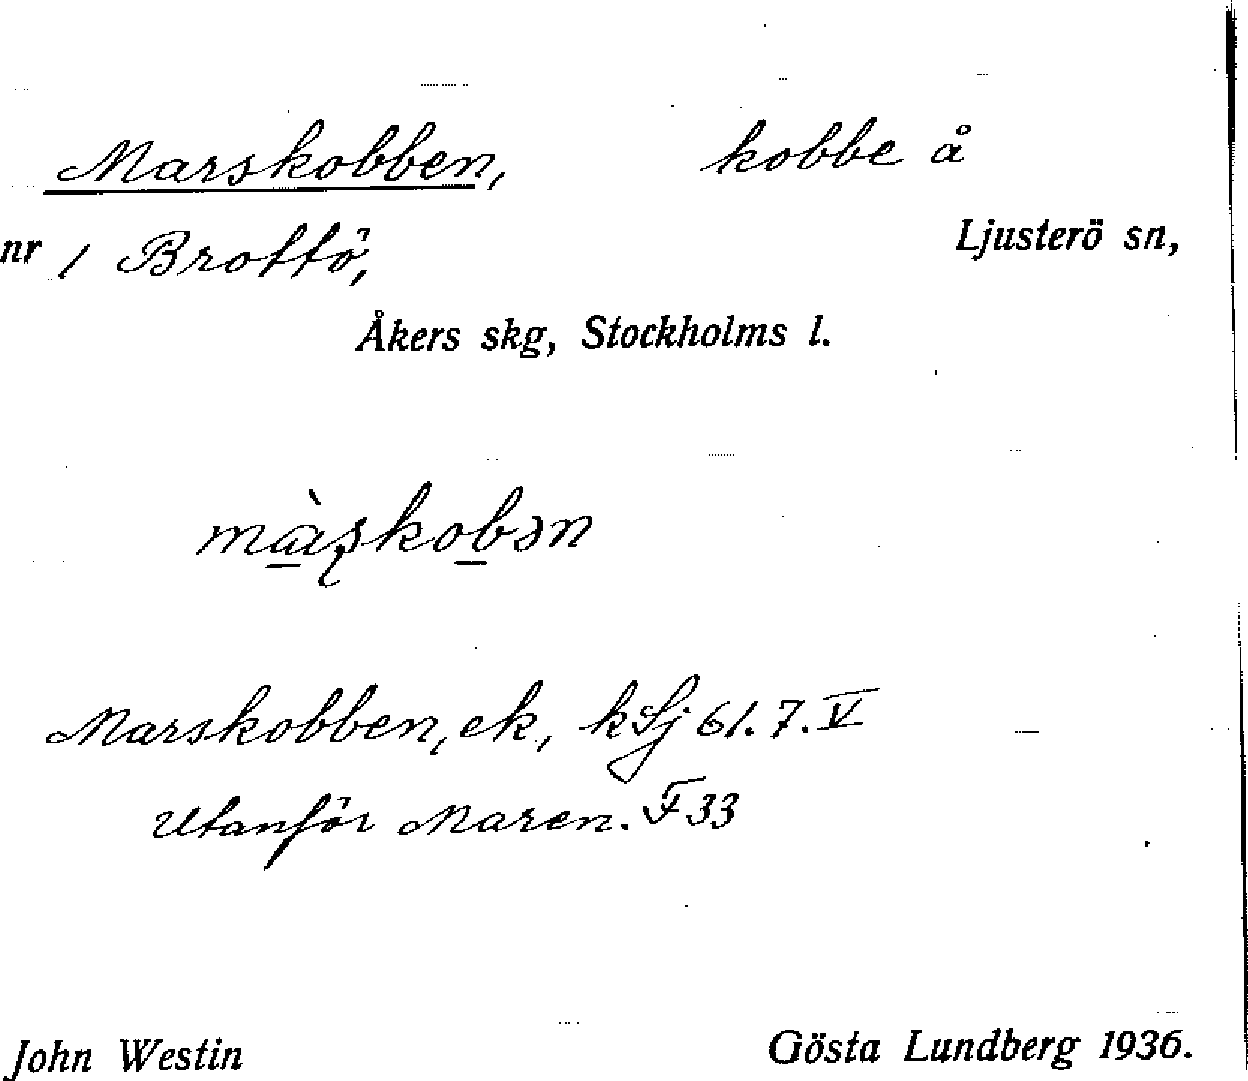 Marskobben, kobbe å
nr 1 Brottö, Ljusterö sn,
Åkers skg, Stockholms l.
màʂkobən
Marskobben, ek, kSj 61.7.V
Utanför Maren. F 33
John Westin Gösta Lundberg 1936.